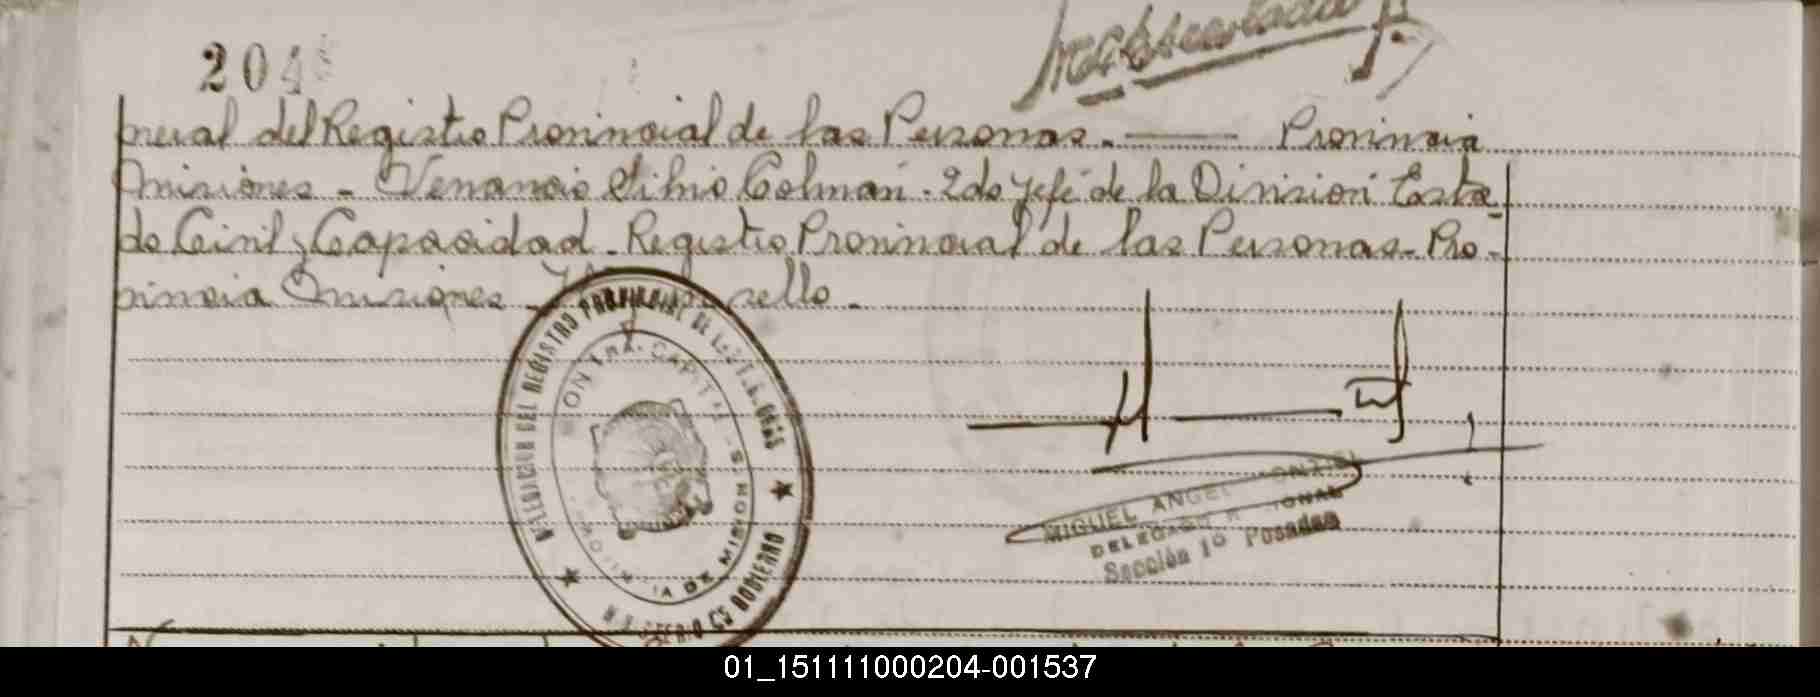 204
Inmatriculada
neral del Registro Provincial de las Personas. —— Provincia
Misiones - Venancio Silvio Colman. 2do Jefe de la Division Esta-
do Civil y Capacidad. Registro Provincial de las Personas - Pro-
vincia Misiones - sello.
DEL REGISTRO PROVINCIAL DE
CAPITAL
DE MISIONES
GOBIERNO
MIGUEL ANGEL
Sección 1º Posadas
01_151111000204-001537